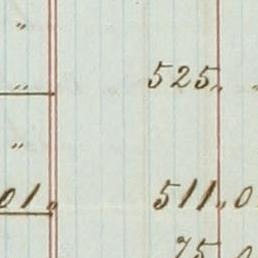 "
525. "
"
"
01. 511.0
75.0